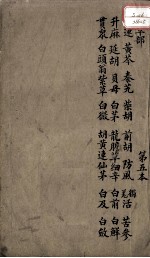 草部
第五本
連 黃芩 秦艽 柴胡 前胡 防風 獨活 羌 苦參
升麻 延胡 貝母 白茅 龍膽草 細辛 白前 白鮮
貫衆 白頭翁 紫草 白微 胡黃連 仙茅 白及 白斂